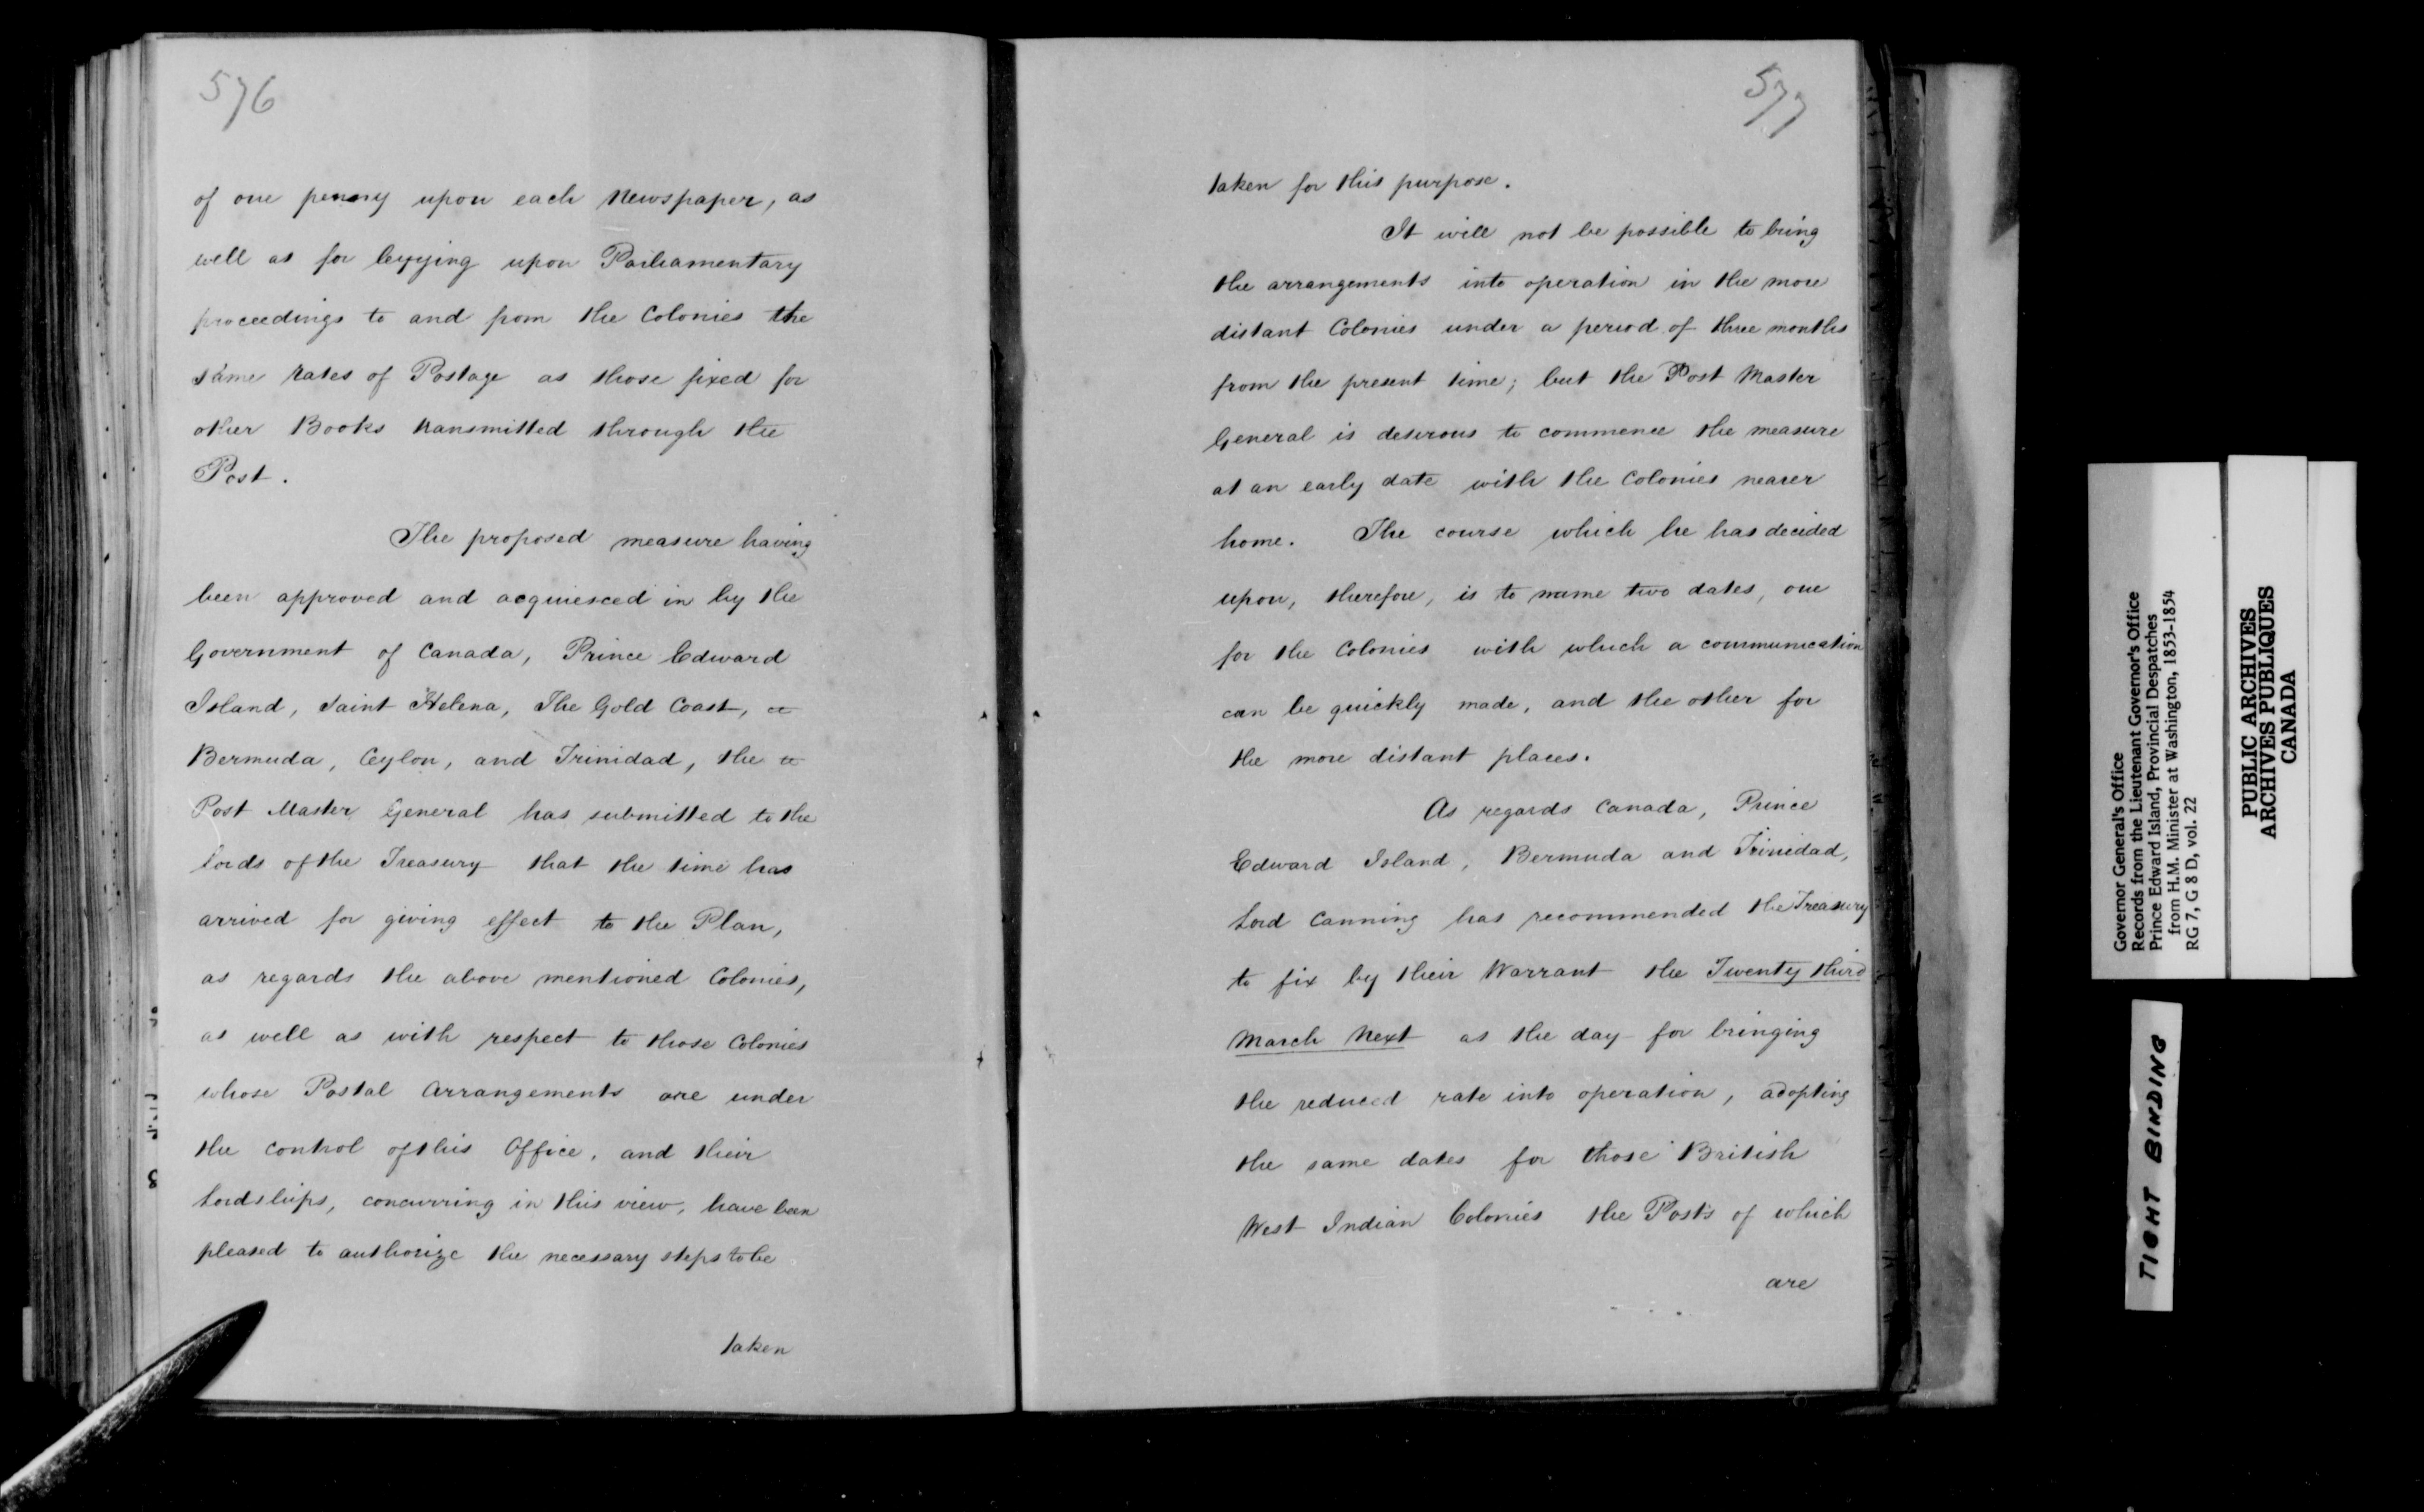 576
of one penny upon each Newspaper, as
well as for levying upon Parliamentary
proceedings to and from the Colonies the
same rates of Postage as those fixed for
other Books transmitted through the
Post.
The proposed measure having
been approved and acquiesced in by the
Government of Canada, Prince Edward
Island, Saint Helena, The Gold Coast,
Bermuda, Ceylon, and Trinidad, the
Post Master General has submitted to the
Lords of the Treasury that the time has
arrived for giving effect to the Plan,
as regards the above mentioned Colonies,
as well as with respect to those Colonies
whose Postal Arrangements are under
the control of this Office, and their
Lordships, concurring in this view, have been
pleased to authorize the necessary steps to be
taken
577
taken for this purpose.
It will not be possible to bring
the arrangements into operation in the more
distant Colonies under a period of three months
from the present time; but the Post Master
General is desirous to commence the measure
at an early date with the Colonies nearer
home. The course which he has decided
upon, therefore, is to name two dates, one
for the Colonies with which a communication
can be quickly made, and the other for
the more distant places.
As regards Canada, Prince
Edward Island, Bermuda and Trinidad,
Lord Canning has recommended the Treasury
to fix by their Warrant the Twenty third
March Next as the day for bringing
the reduced rate into operation, adopting
the same dates for those British
West Indian Colonies the Posts of which
are
Governor General's Office
Records from the Lieutenant Governor's Office
Prince Edward Island, Provincial Despatches
from H.M. Minister at Washington, 1853-1854
RG 7, G 8 D, vol. 22
PUBLIC ARCHIVES
ARCHIVES PUBLIQUES
CANADA
TIGHT BINDING